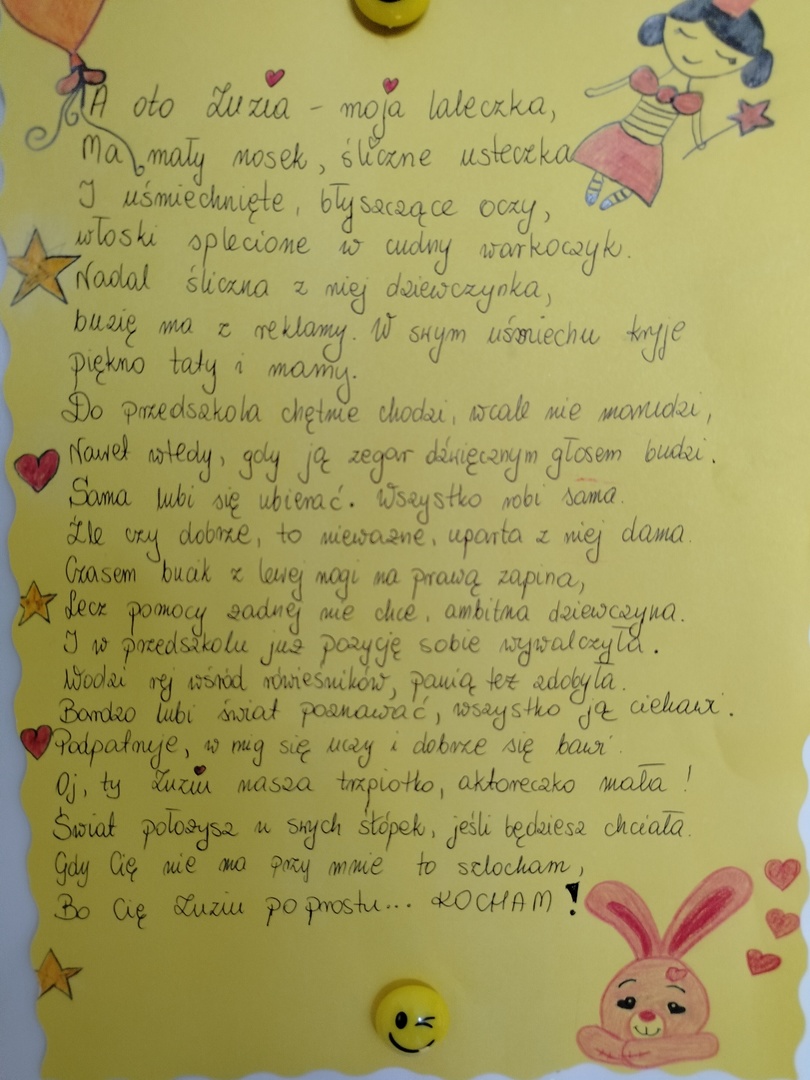 A oto Zuzia - moja laleczka,
Ma mały nosek, śliczne usteczka
I uśmiechnięte, błyszczące oczy,
włoski splecione w cudny warkoczyk.
Nadal śliczna z niej dziewczynka,
buzię ma z reklamy. W swym uśmiechu kryje
piękno taty i mamy.
Do przedszkola chętnie chodzi, wcale nie marudzi,
Nawet wtedy, gdy ją zegar dźwięcznym głosem budzi.
Sama lubi się ubierać. Wszystko robi sama.
Źle czy dobrze, to nieważne, uparta z niej dama.
Czasem bucik z lewej nogi na prawą zapina,
Lecz pomocy żadnej nie chce, ambitna dziewczyna.
I w przedszkolu już pozycję sobie wywalczyła.
Wodzi rej wśród rówieśników, panią też zdobyła.
Bardzo lubi świat poznawać, wszystko ją ciekawi.
Podpatruje, w mig się uczy i dobrze się bawi.
Oj, ty Zuziu nasza trzpiotko, aktoreczko mała!
Świat położysz u swych stópek, jeśli będziesz chciała.
Gdy Cię nie ma przy mnie to szlocham,
Bo Cię Zuziu po prostu... KOCHAM!